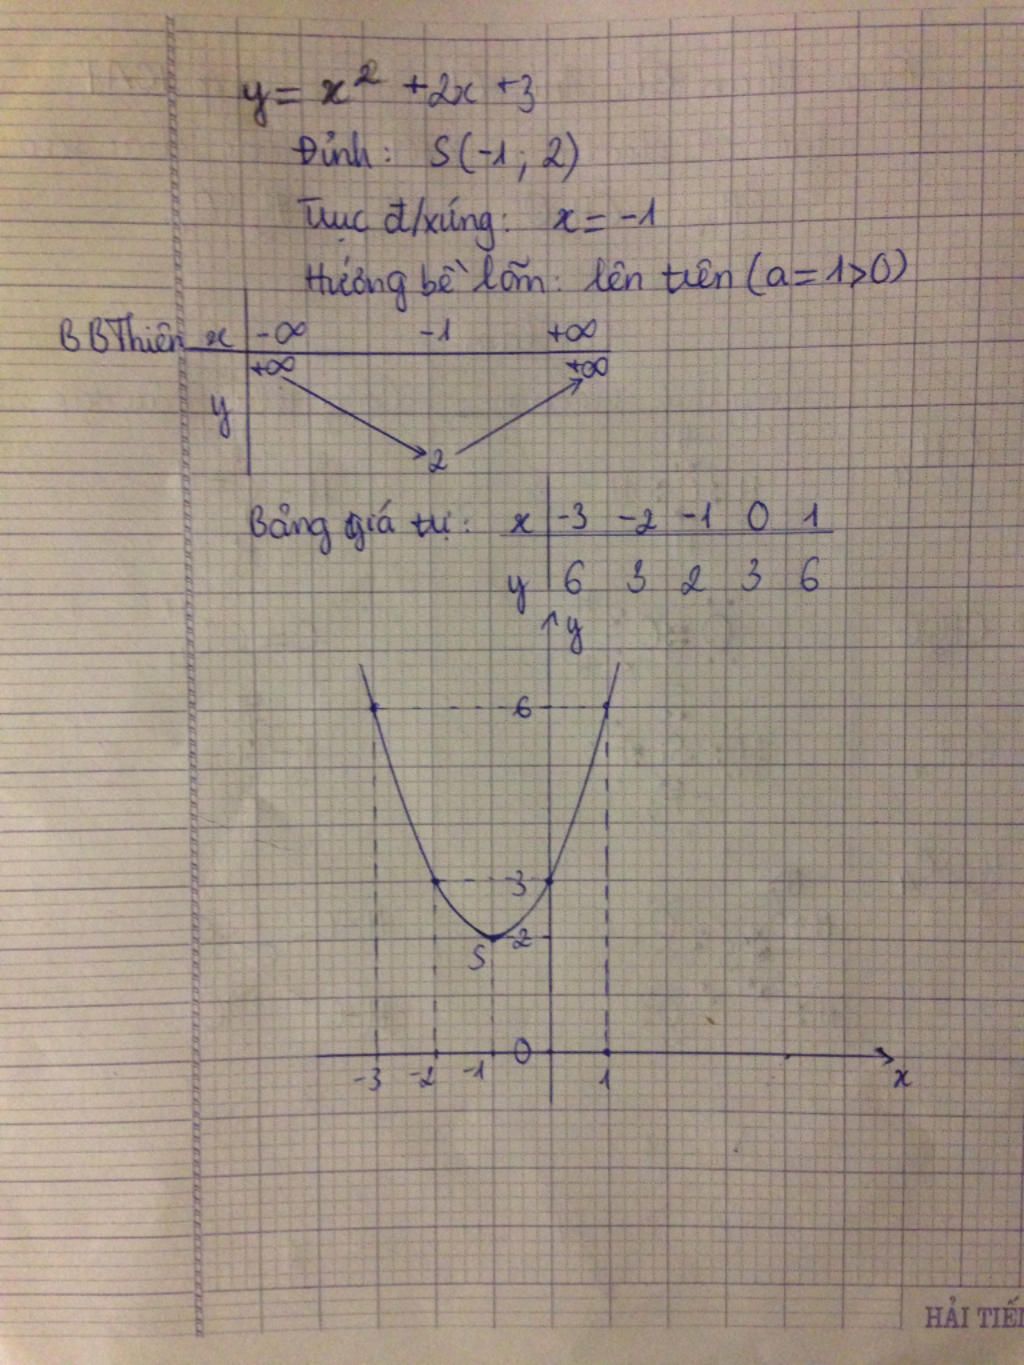 y = x² + 2x + 3
Đỉnh: S(-1; 2)
Trục đ/xứng: x = -1
Hướng bề lõm: lên trên (a = 1 > 0)
BBThiên x -∞ -1 +∞
+∞ +∞
y
2
Bảng giá trị: x -3 -2 -1 0 1
y 6 3 2 3 6
y
6
3
2
S
0
-3 -2 -1 1 x
HẢI TIẾ